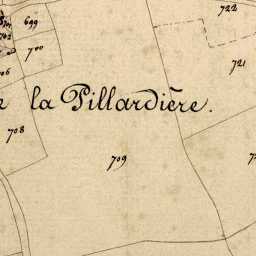 699
722
700
721
la Pillardière.
708
709